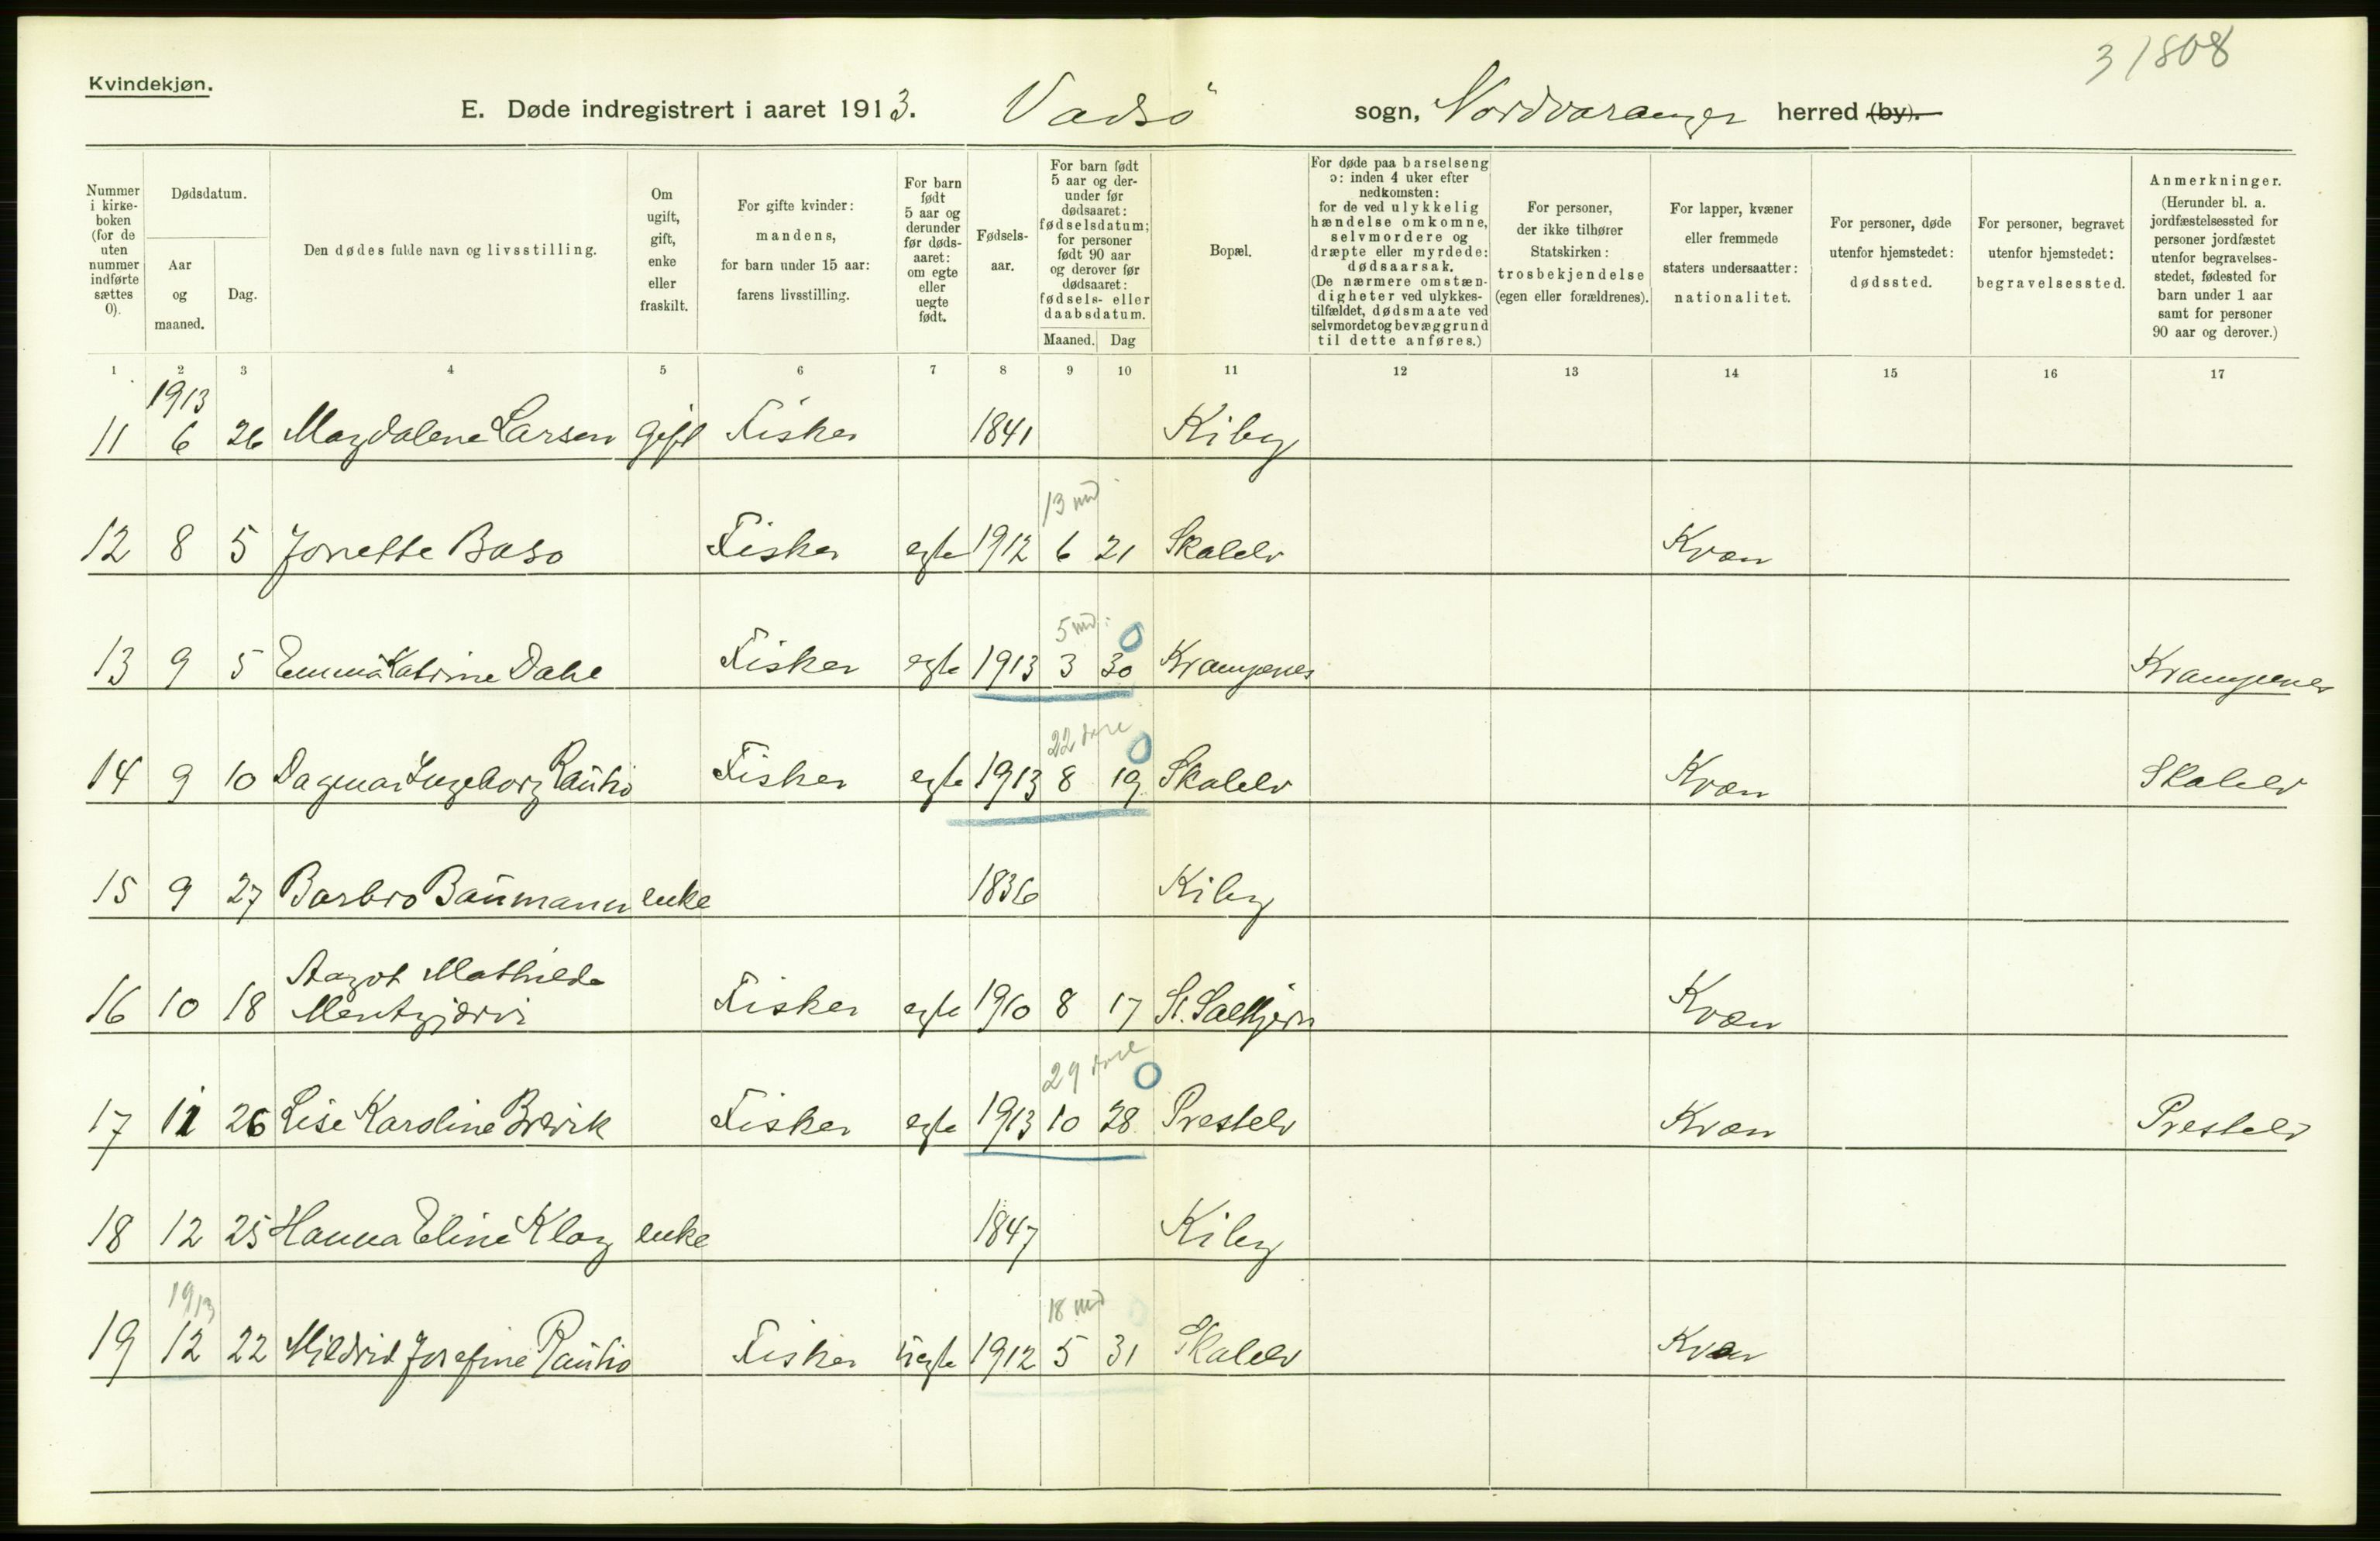 31808
Kvindekjøn.
E. Døde indregistrert i aaret 1913. Vadsö sogn, Nordvaranger herred (by).
Nummer i kirke-boken (for de uten nummer indførte sættes 0).
Dødsdatum.
Aar og maaned.
Dag.
Den dødes fulde navn og livsstilling.
Om ugift, gift, enke eller fraskilt.
For gifte kvinder: mandens, for barn under 15 aar: farens livsstilling.
For barn født 5 aar og derunder før døds-aaret: om egte eller uegte født.
Fødsels-aar.
For barn født 5 aar og der-under før dødsaaret: fødselsdatum; for personer født 90 aar og derover før dødsaaret: fødsels- eller daabsdatum.
Maaned. Dag
Bopæl.
For døde paa barselseng ɔ: inden 4 uker efter nedkomsten: for de ved ulykkelig hændelse omkomne, selvmordere og dræpte eller myrdede: dødsaarsak. (De nærmere omstæn-digheter ved ulykkes-tilfældet, dødsmaate ved selvmordet og bevæggrund til dette anføres.)
For personer, der ikke tilhører Statskirken: trosbekjendelse (egen eller forældrenes).
For lapper, kvæner eller fremmede staters undersaatter: nationalitet.
For personer, døde utenfor hjemstedet: dødssted.
For personer, begravet utenfor hjemstedet: begravelsessted.
Anmerkninger. (Herunder bl. a. jordfæstelsessted for personer jordfæstet utenfor begravelses-stedet, fødested for barn under 1 aar samt for personer 90 aar og derover.)
1 2 3 4 5 6 7 8 9 10 11 12 13 14 15 16 17
1913
11 6 26 Magdalene Larsen gift Fisker 1841 Kiby
13 md
12 8 5 Jonette Baso Fisker egte 1912 6 21 Skalelv Kvæn
5 md. 0
13 9 5 Emma Katrine Dahl Fisker egte 1913 3 30 Krampenes Krampenes
22 dage 0
14 9 10 Dagmar Ingeborg Rautio Fisker egte 1913 8 19 Skalelv Kvæn Skalelv
15 9 27 Barbro Baumann enke 1836 Kiby
Aagot Mathilde
16 10 18 Mentyjärvi Fisker egte 1910 8 17 St. Saltjern Kvæn
29 dage 0
17 11 26 Lise Karoline Brævik Fisker egte 1913 10 28 Prestelv Kvæn Prestelv
18 12 25 Hanna Eline Klog enke 1847 Kiby
1913 18 md 0
19 12 22 Hildrid Josefine Rautio Fisker uegte 1912 5 31 Skalelv Kvæn